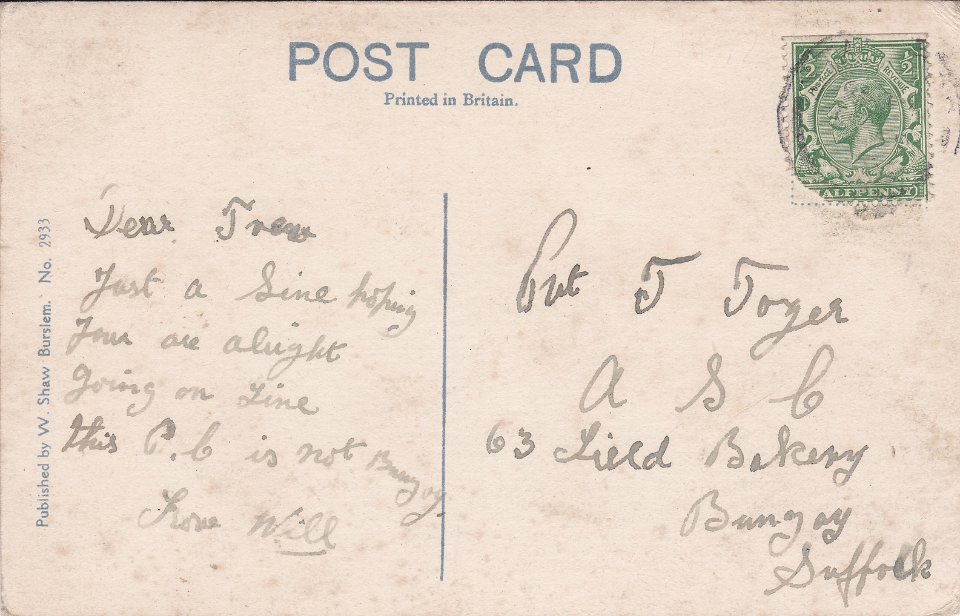 POST CARD
Printed in Britain.
½ ½
POSTAGE REVENUE
HALFPENNY
Published by W. Shaw Burslem. No. 2933
Dear
Just a Line hoping
Your are alright
Going on Fine
this P.C is not Bungay
Love Will
Pvt T Toyer
A S C
63 Field Bakery
Bungay
Suffolk